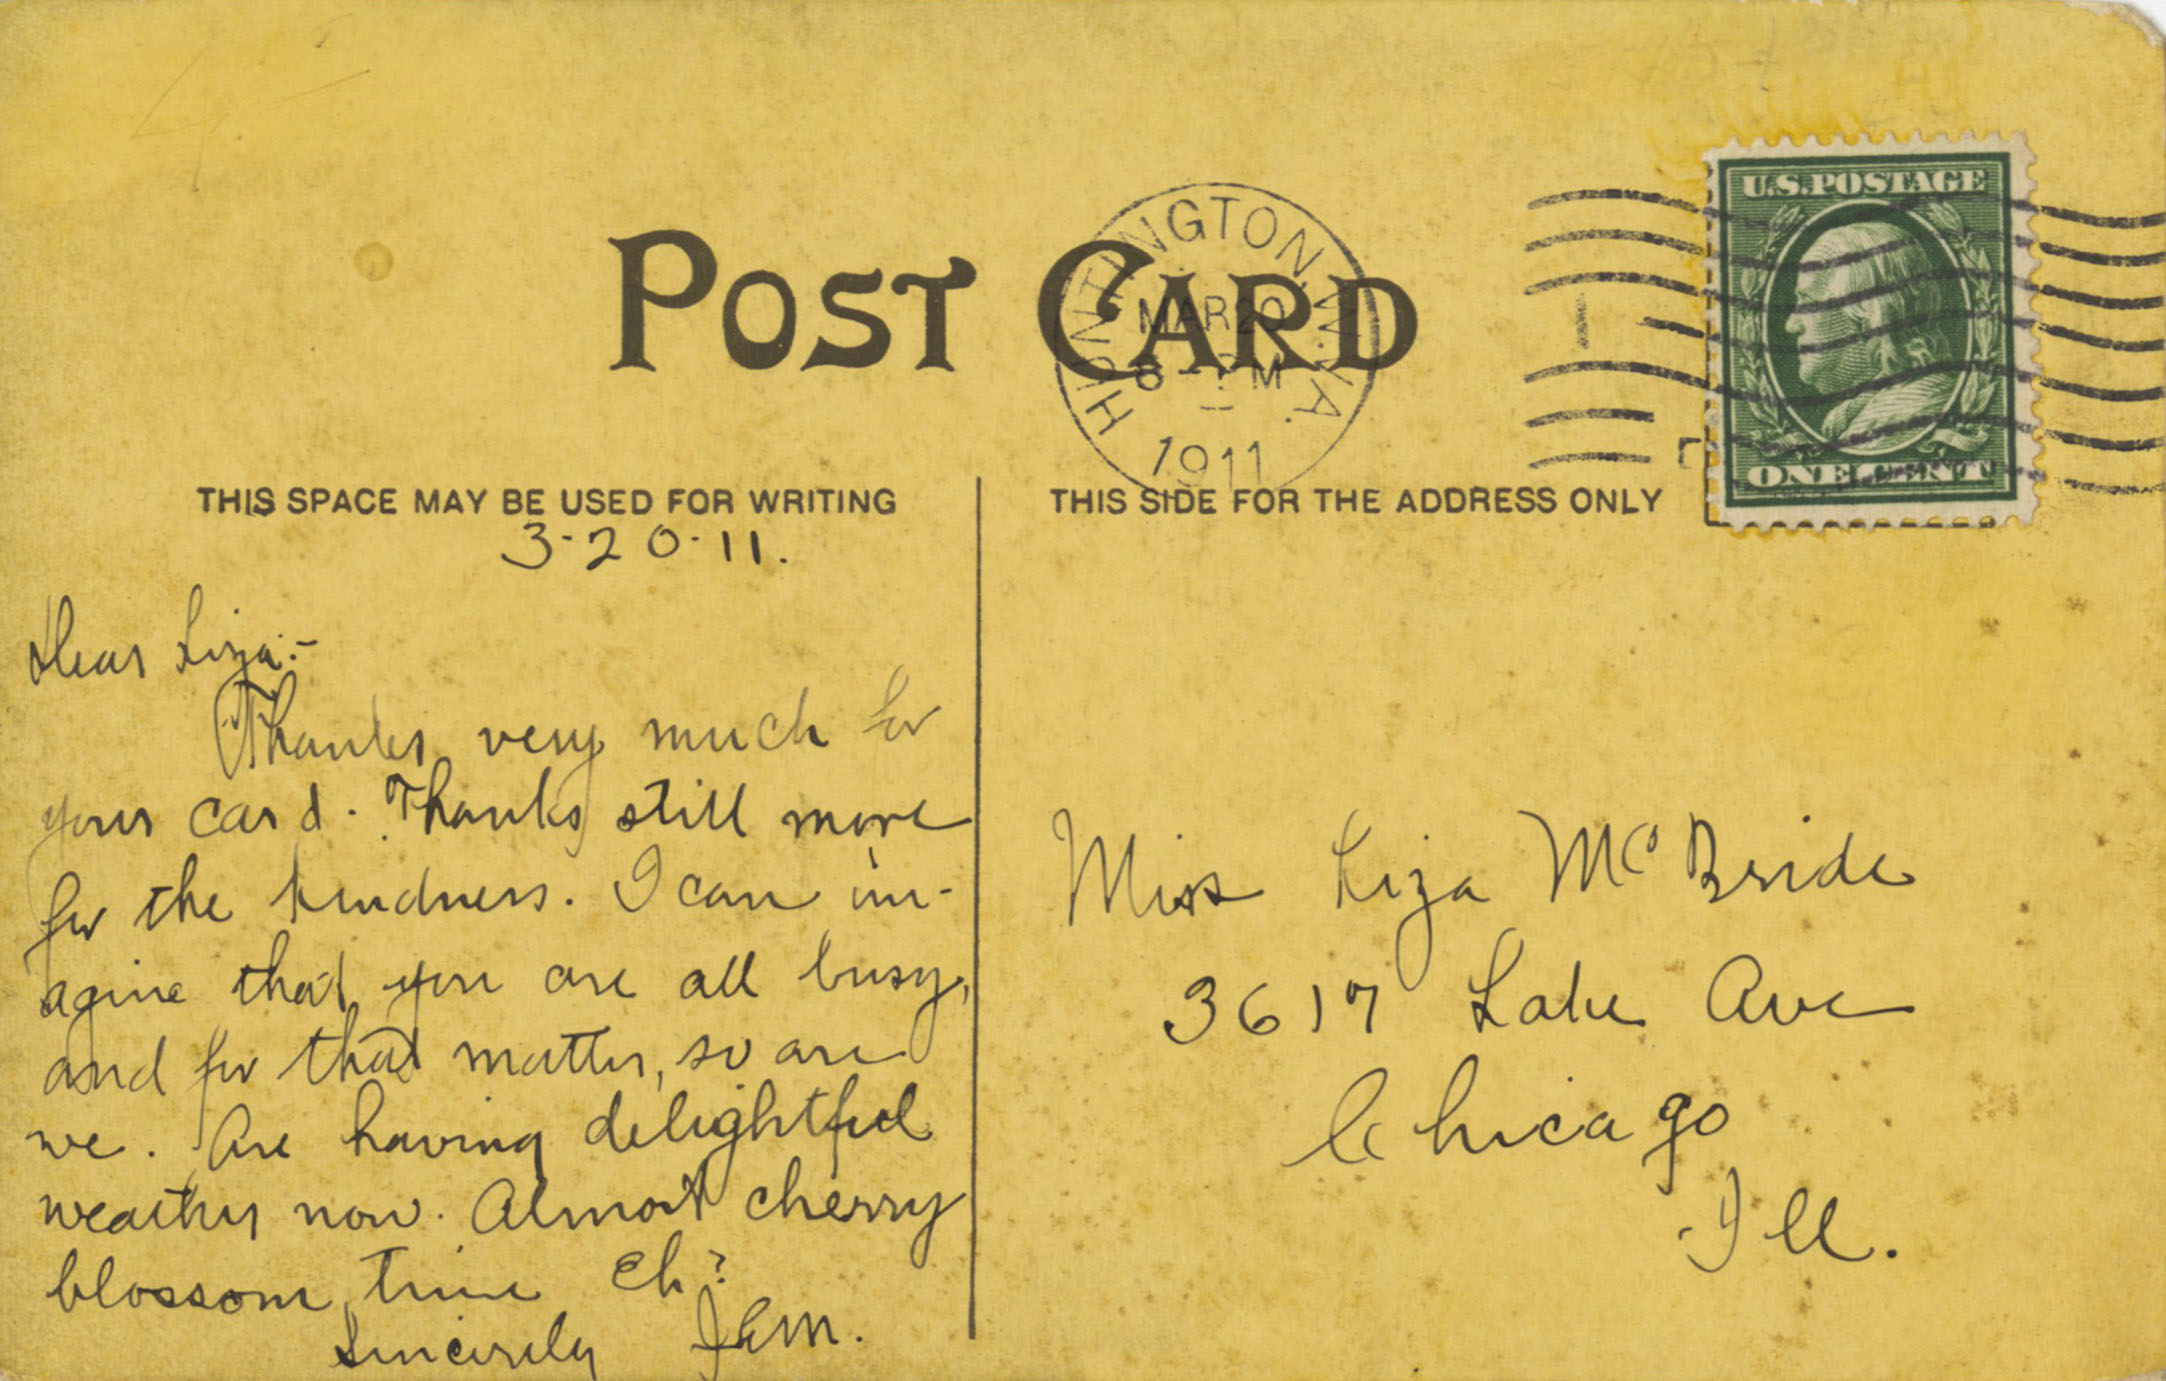 POST CARD
HUNTINGTON, W.VA.
MAR 20
6 - PM
1911
U.S. POSTAGE
ONE CENT
THIS SPACE MAY BE USED FOR WRITING
3-20-11.
Dear Liza:-
Thanks very much for
your card. Thanks still more
for the kindness. I can im-
agine that you are all busy,
and for that matter, so are
we. Are having delightful
weather now. Almost cherry
blossom time Eh?
Sincerely JEM.
THIS SIDE FOR THE ADDRESS ONLY
Miss Liza McBride
3617 Lake Ave
Chicago
Ill.